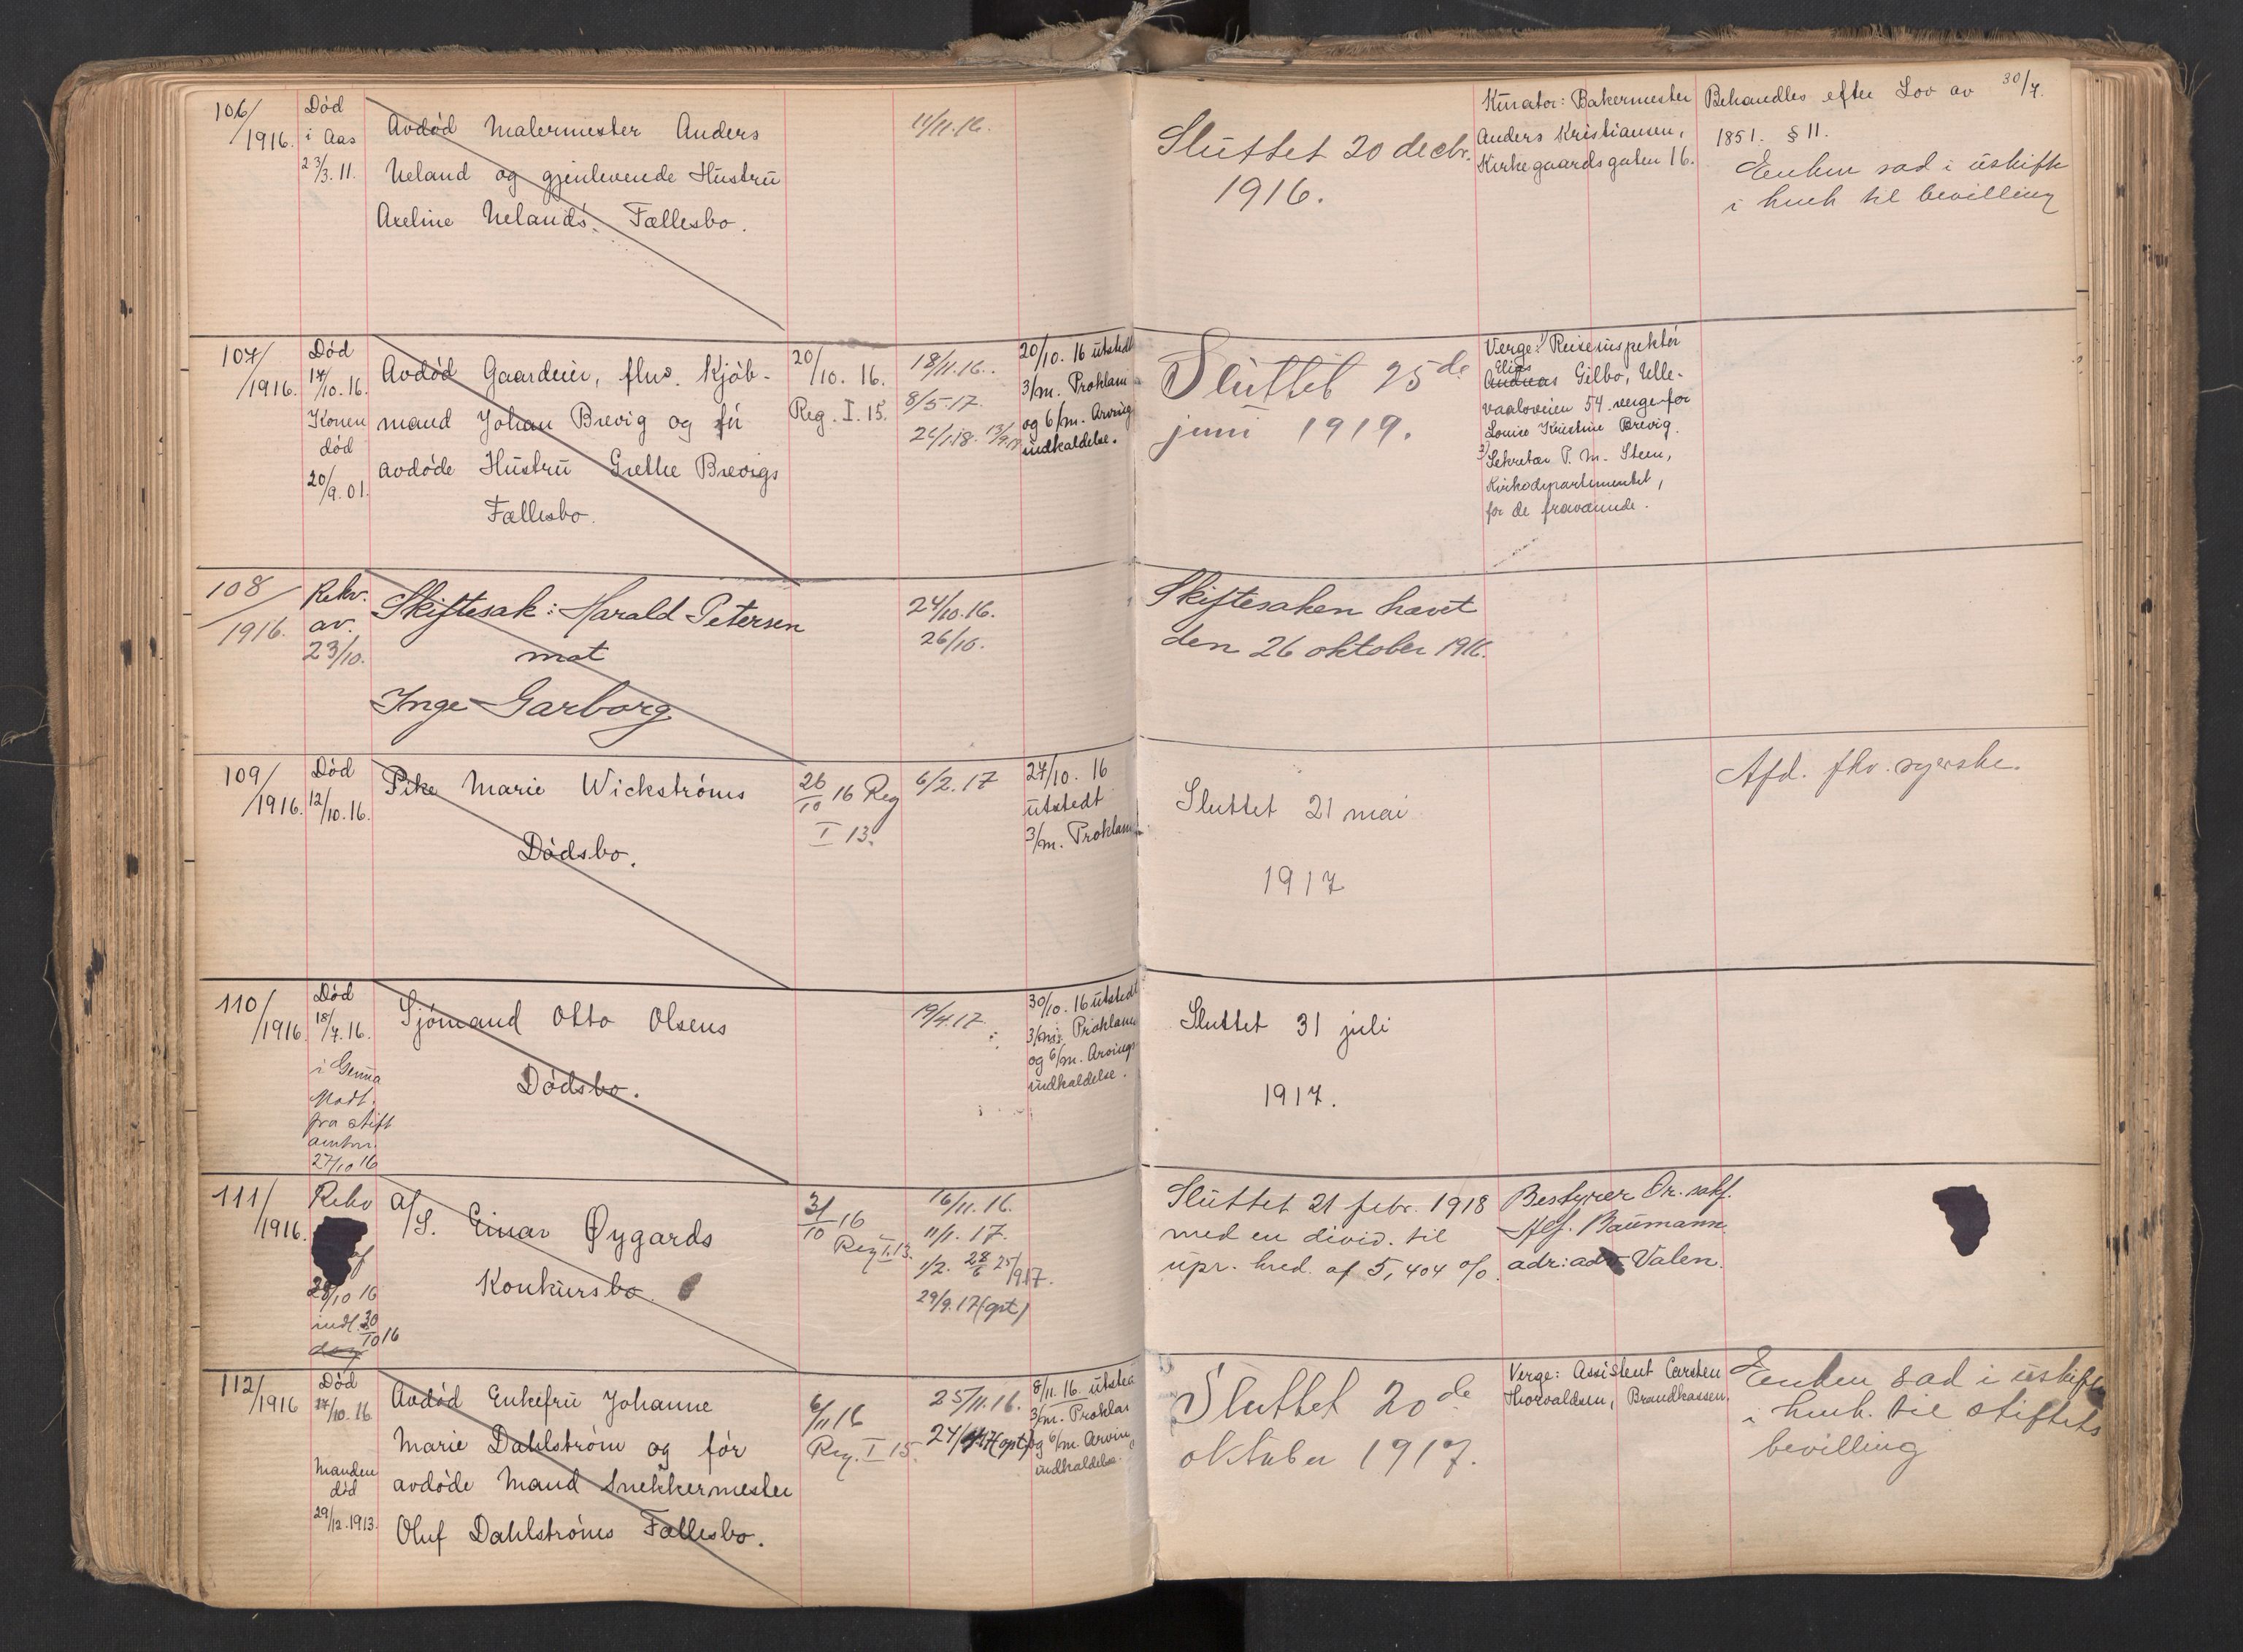 106/1916.
Død
i Aas
23/3. 11.
Avdød Malermester Anders
Ueland og gjenlevende Hustru
Axeline Uelands Fællesbo.
11/11.16.
Sluttet 20 decbr.
1916.
Kurator: Bakermester
Anders Kristiansen,
Kirkegaardsgaten 16.
Behandles efter Lov av 30/7.
1851. § 11.
Enken sad i uskifte
i henh til bevilling
107/1916.
Død
17/10.16.
Konen
død
20/9.01.
Avdød Gaardeier, fhv. Kjøb-
mand Johan Brevig og før
avdøde Hustru Grethe Brevigs
Fællesbo.
20/10. 16.
Reg. I. 15.
18/11.16.
8/5.17.
24/1.18. 13/9.19.
20/10. 16 utstedt
3/m. Proklam
og 6/m. Arving
indkaldelse.
Sluttet 25de
juni 1919.
Verge: 1/ Reiseinspektør
Elias
Andreas Gilbo, Ulle-
vaalsveien 54. verge for
Louise Kristine Brevig.
3/ Sekretær P. M. Steen,
Kirkedepartementet,
for de fraværende.
108/1916.
Rekv.
av.
23/10.
Skiftesak: Harald Petersen
mot
Inge Garborg
24/10.16.
26/10.
Skiftesaken hævet
den 26 oktober 1916.
109/1916.
Død
12/10.16.
Pike Marie Wickstrøms
Dødsbo.
26/10 16 Reg
I 13.
6/2.17
27/10. 16
utstedt
3/m. Proklam
Sluttet 21 mai
1917
Afd. fhv. syerske.
110/1916.
Død
18/7.16.
i Genua
Medd.
fra stift
amtm.
27/10 16
Sjømand Otto Olsens
Dødsbo.
19/4.17.
30/10.16 utstedt
3/ms. Proklama
og 6/m. Arvings
indkaldelse.
Sluttet 31 juli
1917.
111/1916.
Rekv
af
28/10 16
indl. 30/10 16
A/S. Einar Øygards
Konkursbo.
31/10 16
Reg I. 13.
16/11. 16.
11/1. 17.
1/2. 28/6 25/9 17.
29/9.17 (opt)
Sluttet 21 febr. 1918
med en divid. til
upr. kred. af 5,404 %.
Bestyrer Or. sakf.
Alf. Baumann.
adr: adv Valen.
112/1916
Død
17/10.16
Manden
død
29/12.1913.
Avdød Enkefru Johanne
Marie Dahlstrøm og før
avdøde Mand Snekkermester
Oluf Dahlstrøms Fællesbo.
6/11 16
Reg. I 15.
25/11.16.
8/11. 16. utsted
3/m. Proklam
og 6/m. Arving
indkaldelse.
Sluttet 20de
oktober 1917.
Verge: Assistent Carsten
Thorvaldsen, Brandkassen.
Enken sad i uskifte
i henh. til stiftets
bevilling